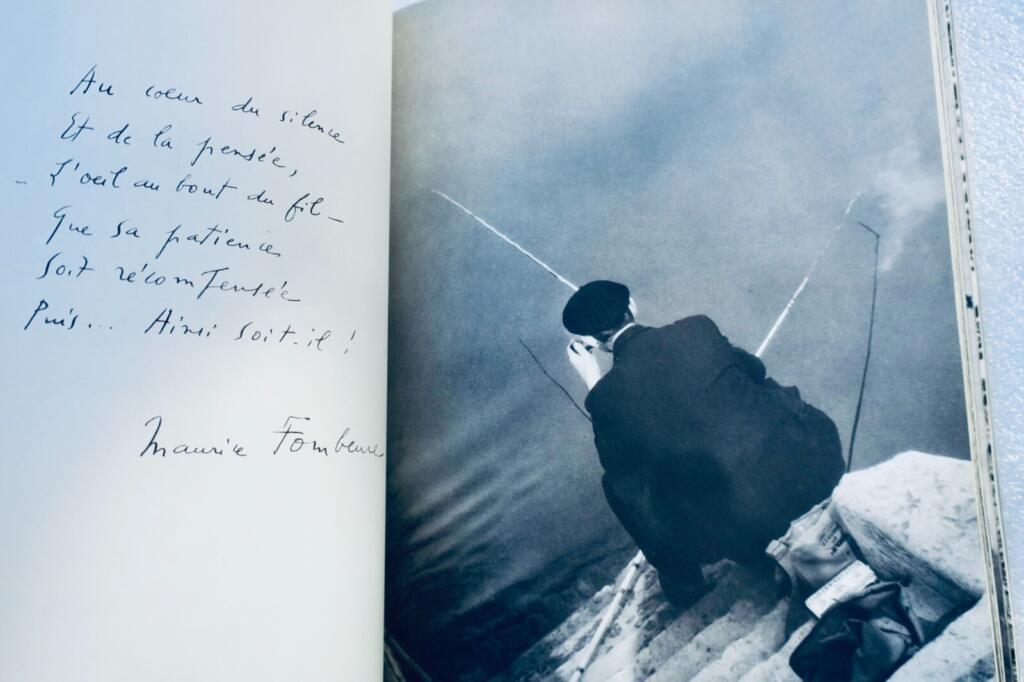 Au coeur du silence
Et de la pensée,
- L'oeil au bout du fil -
Que sa patience
soit récompensée
Puis... Ainsi soit-il !
Maurice Fombeure